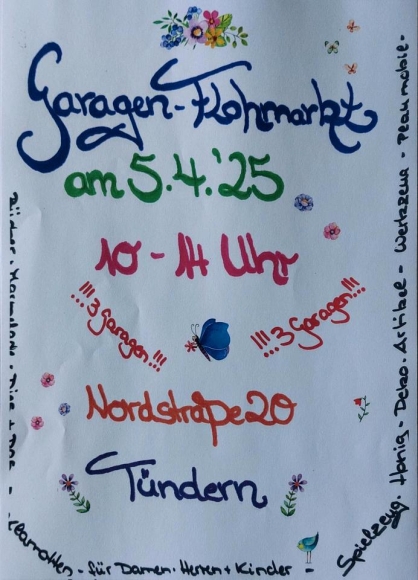 Garagen-Flohmarkt
am 5.4.'25
10-14 Uhr
!!!3 Garagen!!!
!!!3 Garagen!!!
Nordstraße 20
Tündern
Bücher - Marmelade - Dies + Das -
Klamotten - für Damen, Herren + Kinder -
Spielzeug. Honig - Deko-Artikel - Werkzeug - Playmobil -